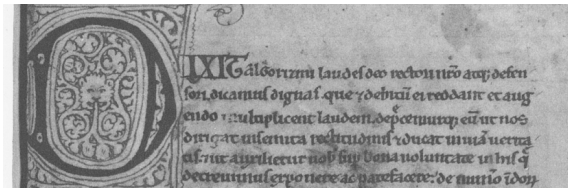 DIXIT algorizmi laudes deo rectori nr̃o atq; defen
sori dicamus dignas. que ⁊ debitũ ei reddant et aug
endo multiplicent laudem. dep̃cemurq; eũ ut nos
dirigat in semita rectitudinis ⁊ ducat in uiã uerita
tis. ⁊ ut auxilietur nob̃ sup̃ bona uoluntate in his q̃
decreuimus exponere ac patefacere: de numo indor